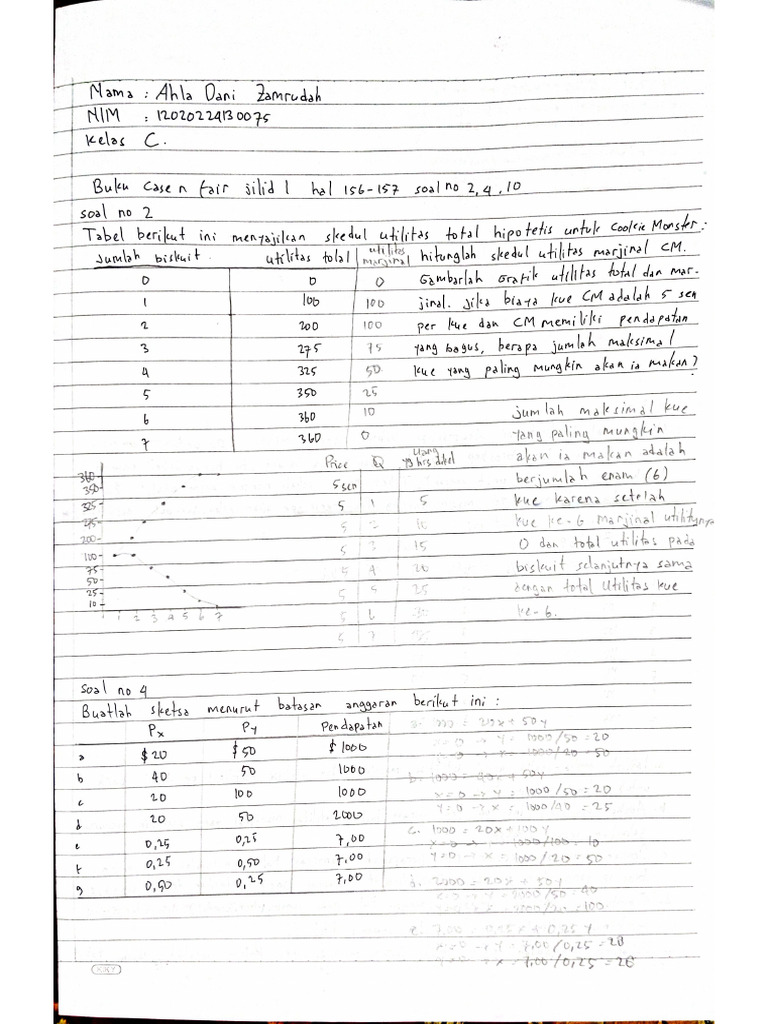 Nama : Ahla Dani Zamrudah
NIM : 12020224130075
Kelas C.
Buku Case n Fair jilid 1 hal 156-157 soal no 2, 4, 10
soal no 2
Tabel berikut ini menyajikan skedul utilitas total hipotetis untuk Cookie Monster:
Jumlah biskuit utilitas total utilitas marginal hitunglah skedul utilitas marjinal CM.
0 0 0 Gambarlah Grafik utilitas total dan mar-
1 100 100 jinal. Jika biaya kue CM adalah 5 sen
2 200 100 per kue dan CM memiliki pendapatan
3 275 75 yang bagus, berapa jumlah maksimal
4 325 50 kue yang paling mungkin akan ia makan?
5 350 25
6 360 10 jumlah maksimal kue
7 360 0 yang paling mungkin
Price Q Uang yg hrs akan ia makan adalah
360 5 sen berjumlah enam (6)
350
325 5 1 5 kue karena setelah
275 5 2 10 kue ke-6 marjinal utilitynya
200
100 5 3 15 0 dan total utilitas pada
75 5 4 20 biskuit selanjutnya sama
50
25 5 5 25 dengan total Utilitas kue
10 5 6 30 ke-6.
1 2 3 4 5 6 7
5 7 35
Soal no 4
Buatlah sketsa menurut batasan anggaran berikut ini :
Px Py Pendapatan
a $20 $50 $1000
b 40 50 1000
c 20 100 1000
d 20 50 2000
e 0,25 0,25 7,00
f 0,25 0,50 7,00
g 0,50 0,25 7,00
= 20x + 50y
x=0 → y = 1000/50 = 20
→ x = 1000/20 = 50
b. 1000 = 40x + 50y
x=0 → y = 1000/50 = 20
y=0 → x = 1000/40 = 25
c. 1000 = 20x + 100y
x=0 → y = 1000/100 = 10
y=0 → x = 1000/20 = 50
d. 2000 = 20x + 50y
/50 = 40
= 100
e. 7,00 = 0,25x + 0,25y
x=0 → y = 7,00/0,25 = 28
→ x = 7,00/0,25 = 28
KKY